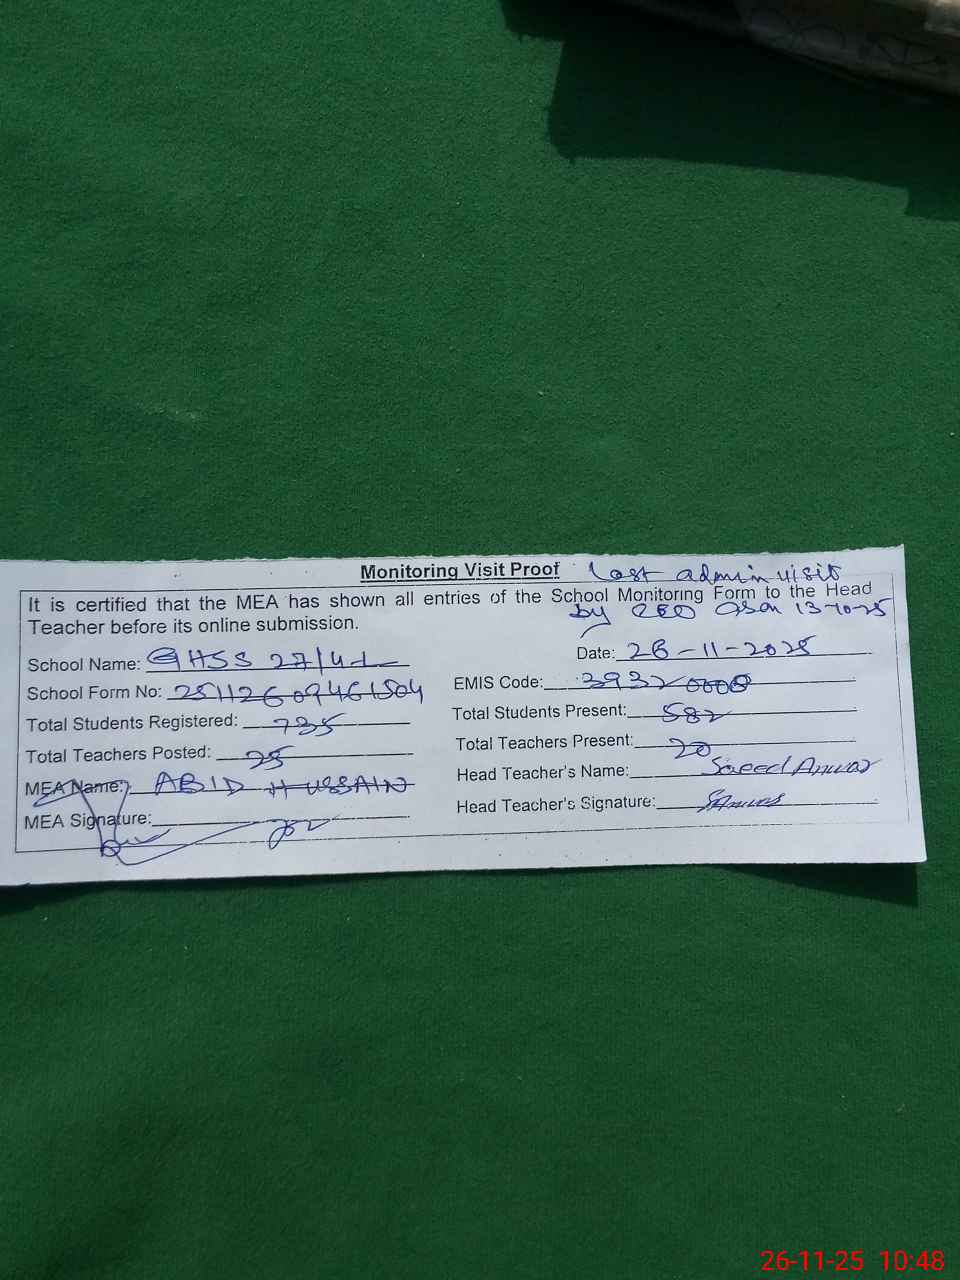 Monitoring Visit Proof Last admin visit
by CEO Osra 13-10-25
It is certified that the MEA has shown all entries of the School Monitoring Form to the Head
Teacher before its online submission.
School Name: GHSS 27/4-L Date: 26-11-2025
School Form No: 25112609461504 EMIS Code: 39320008
Total Students Registered: 735 Total Students Present: 582
Total Teachers Posted: 25 Total Teachers Present: 20
MEA Name: ABID HUSSAIN Head Teacher's Name: Saeed Anwar
MEA Signature: Head Teacher's Signature: SAnwar
26-11-25 10:48